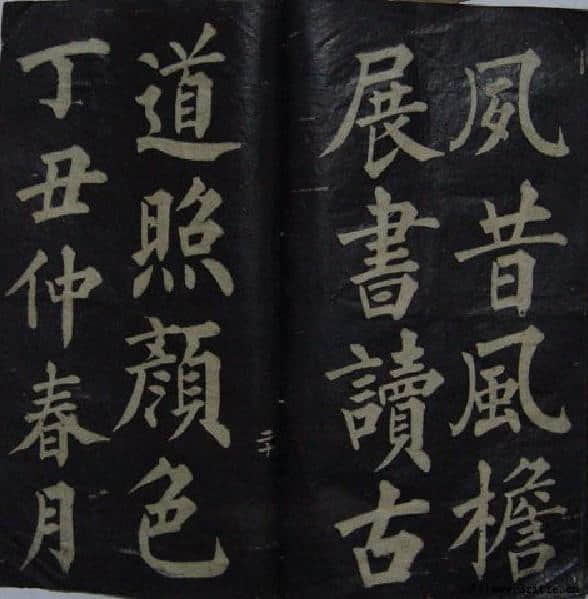 夙昔風檐
展書讀古
道照顏色
丁丑仲春月
二十